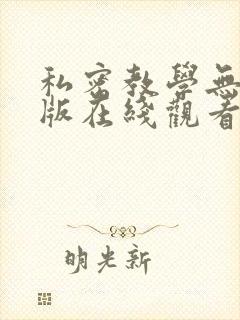 私密教學無
版在綫觀看
明光新